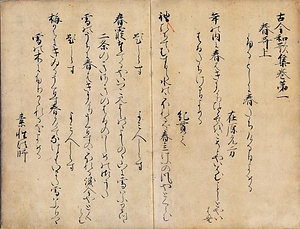 古今和歌集巻第一
春哥上
ふるとしに春たちける日よめる
在原元方
年の内に春はきにけりひとゝせをこそとやいはむことしとや
いはむ
はるたちける日よめる
紀貫之
袖ひちてむすひし水のこほれるを春立けふの風やとくらむ
題しらす
よみ人しらす
春霞たてるやいつこみよしのゝよしのゝ山に雪はふりつゝ
二条のきさきの春のはしめの御うた
雪の内に春はきにけり鶯のこほれる涙今やとくらむ
題しらす
よみ人しらす
梅かえにきゐる鶯春かけてなけともいまた雪はふりつゝ
雪の木にふりかゝれるをよめる
素性法師